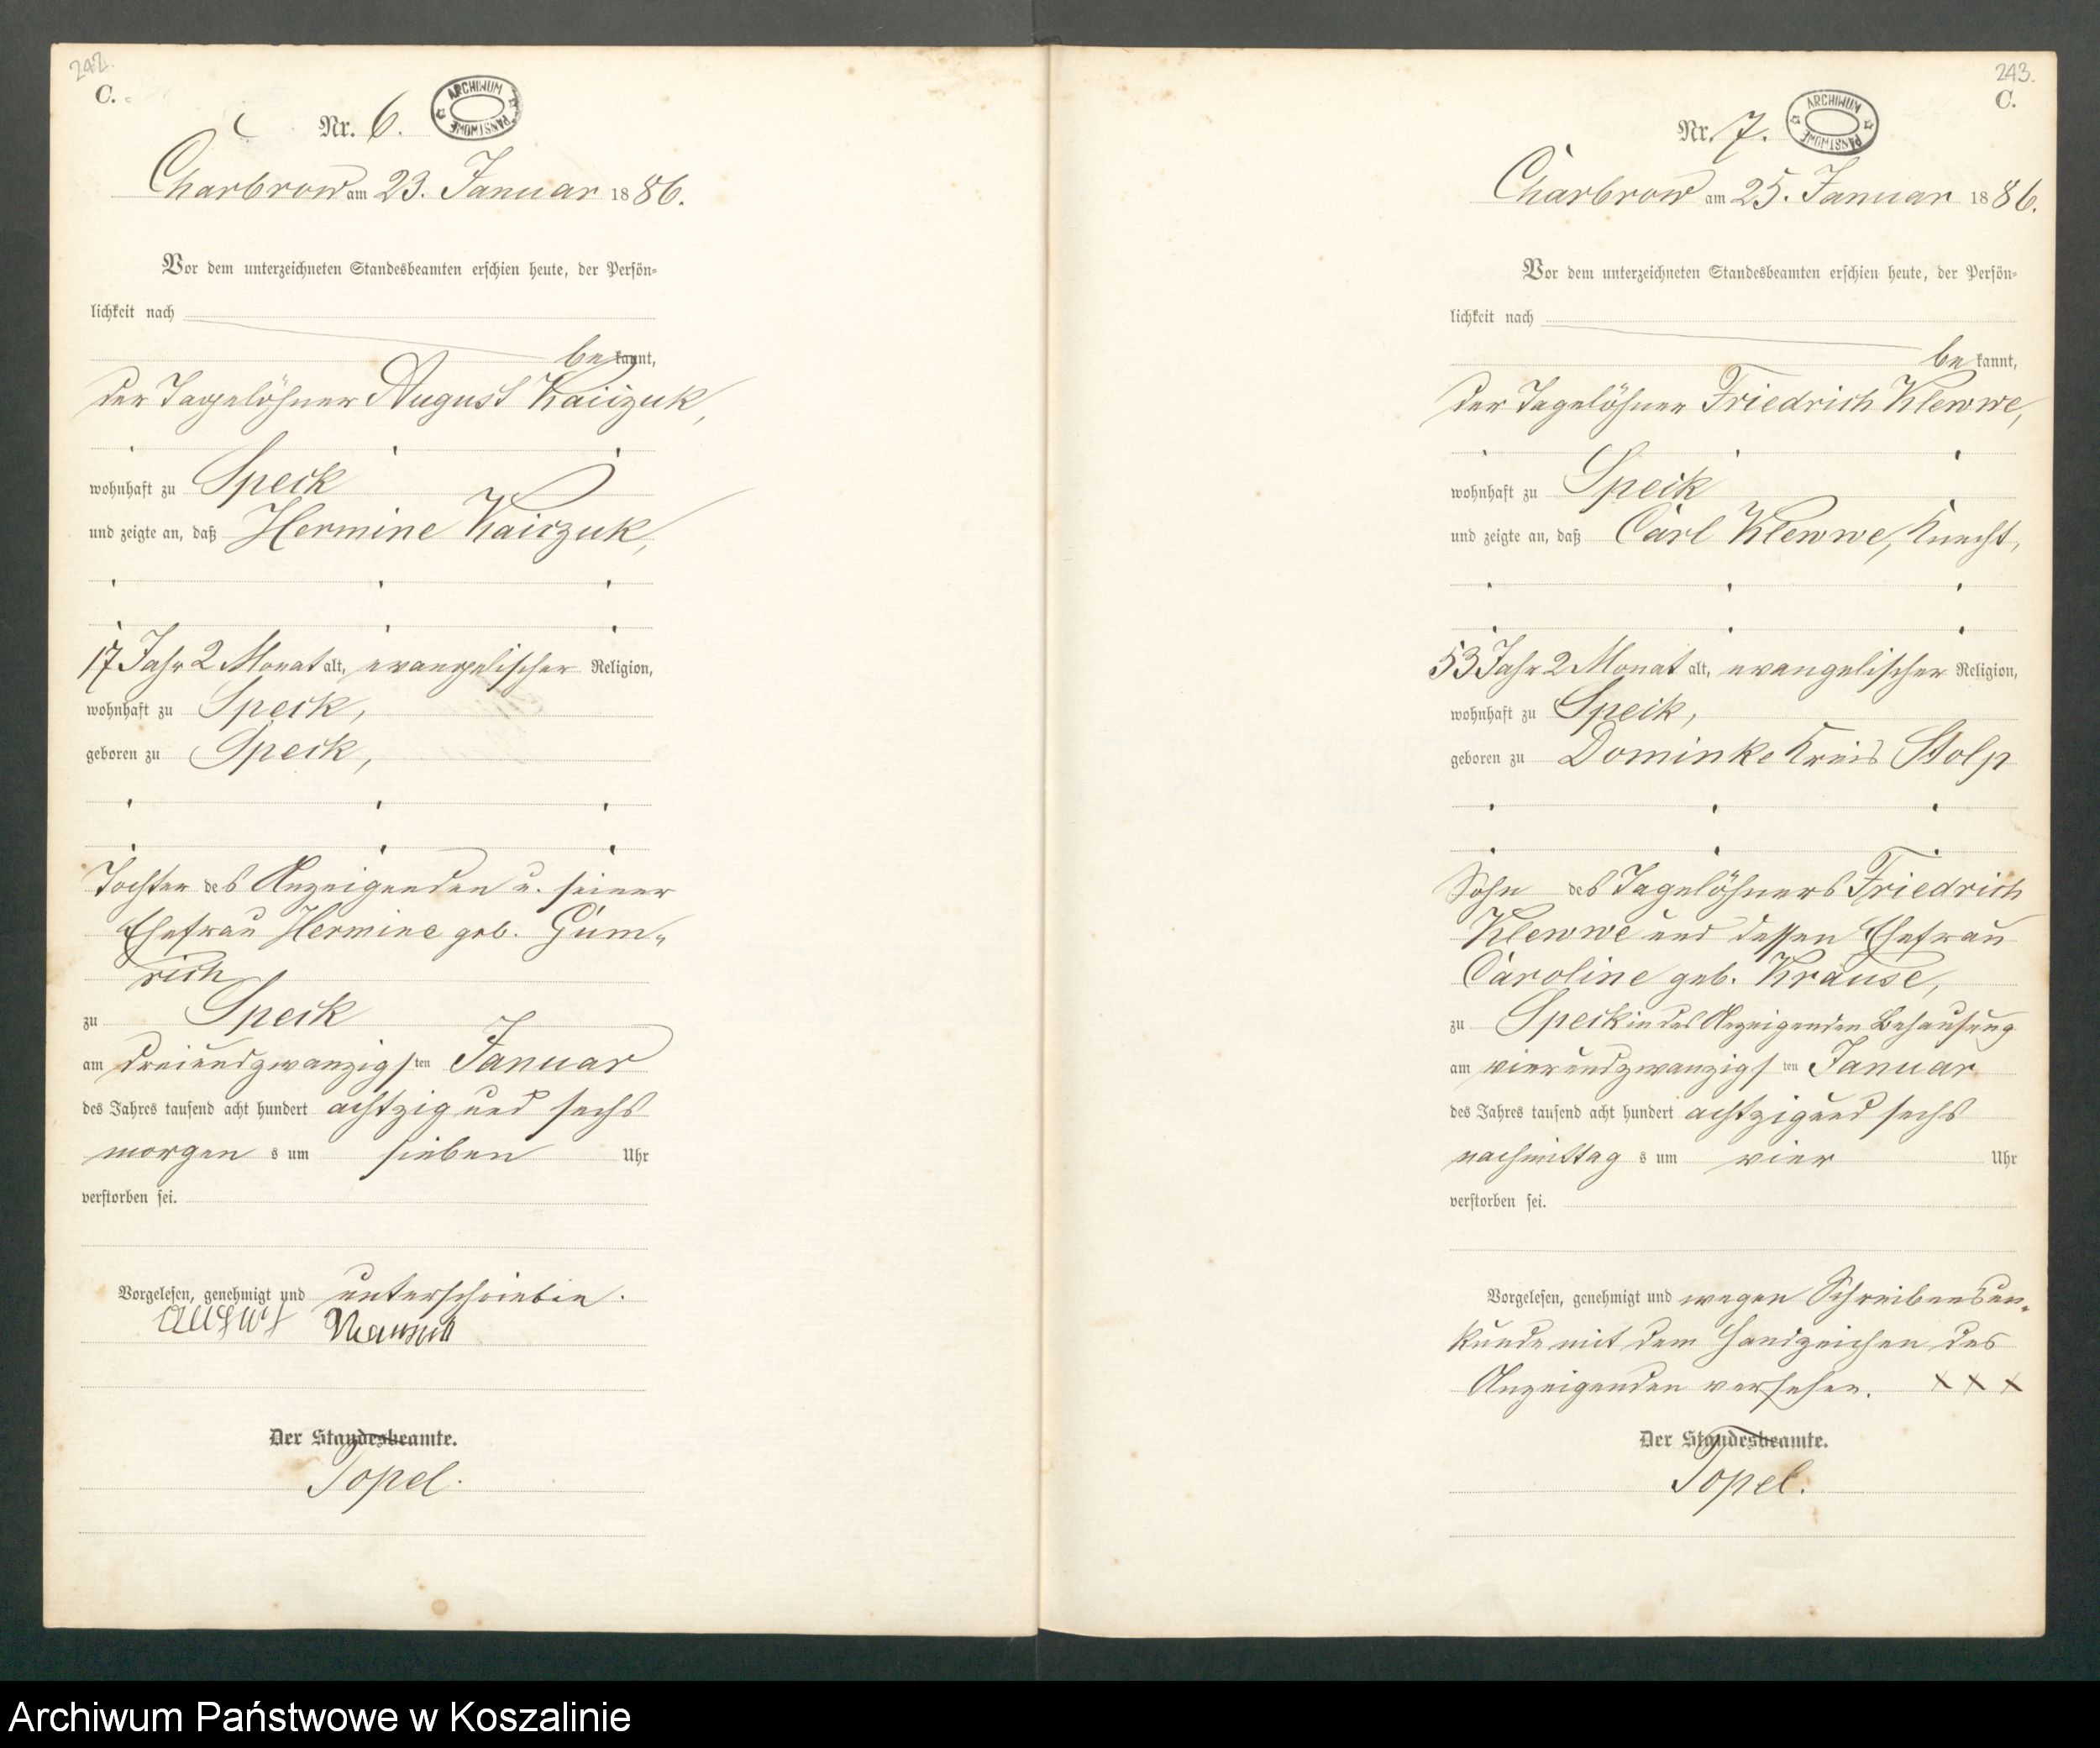 242.
C.
Nr. 6.
ARCHIWUM PAŃSTWOWE
Charbrow am 23. Januar 1886.
Vor dem unterzeichneten Standesbeamten erschien heute, der Persön-
lichkeit nach
bekannt,
der Tagelöhner August
wohnhaft zu Speck
und zeigte an, daß Hermine
17 Jahr 2 Monat alt, evangelischer Religion,
wohnhaft zu Speck,
geboren zu Speck,
Tochter des Anzeigenden u. seiner
Ehefrau Hermine geb. Güm-
rich
zu Speck
am dreiundzwanzigsten Januar
des Jahres tausend acht hundert achtzig und sechs
morgens um sieben Uhr
verstorben sei.
Vorgelesen, genehmigt und unterschrieben.
August
Der Standesbeamte.
Topel.
243.
C.
Nr. 7.
ARCHIWUM PAŃSTWOWE
Charbrow am 25. Januar 1886.
Vor dem unterzeichneten Standesbeamten erschien heute, der Persön-
lichkeit nach
bekannt,
der Tagelöhner Friedrich Klewwe,
wohnhaft zu Speck
und zeigte an, daß Carl Klewwe, Knecht,
53 Jahr 2 Monat alt, evangelischer Religion,
wohnhaft zu Speck,
geboren zu Dominke Kreis Stolp
Sohn des Tagelöhners Friedrich
Klewwe und dessen Ehefrau
Caroline geb. Krause,
zu Speck in des Anzeigenden Behausung
am vierundzwanzigsten Januar
des Jahres tausend acht hundert achtzig und sechs
nachmittags um vier Uhr
verstorben sei.
Vorgelesen, genehmigt und wegen Schreibensun-
kunde mit dem Handzeichen des
Anzeigenden versehen. X X X
Der Standesbeamte.
Topel.
Archiwum Państwowe w Koszalinie